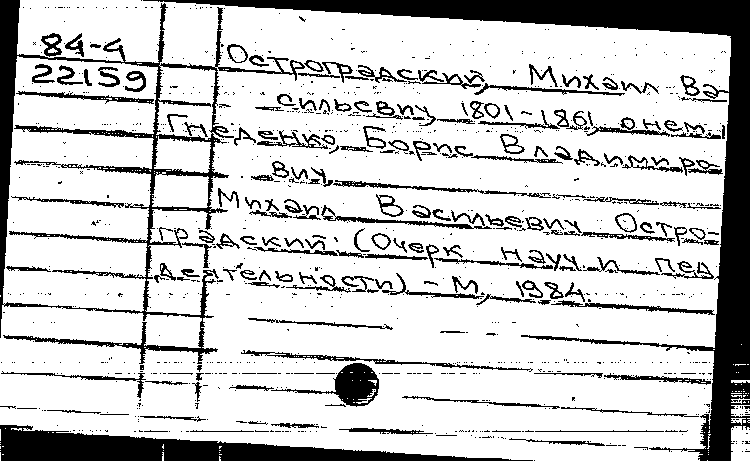 84-4
22159
Остроградский, Михаил Ва-
сильевич, 1801-1861, о нем.
Гнеденко, Борис Владимиро-
вич,
Михаил Васильевич Остро-
градский: (Очерк науч. и пед
деятельности) - М, 1984.